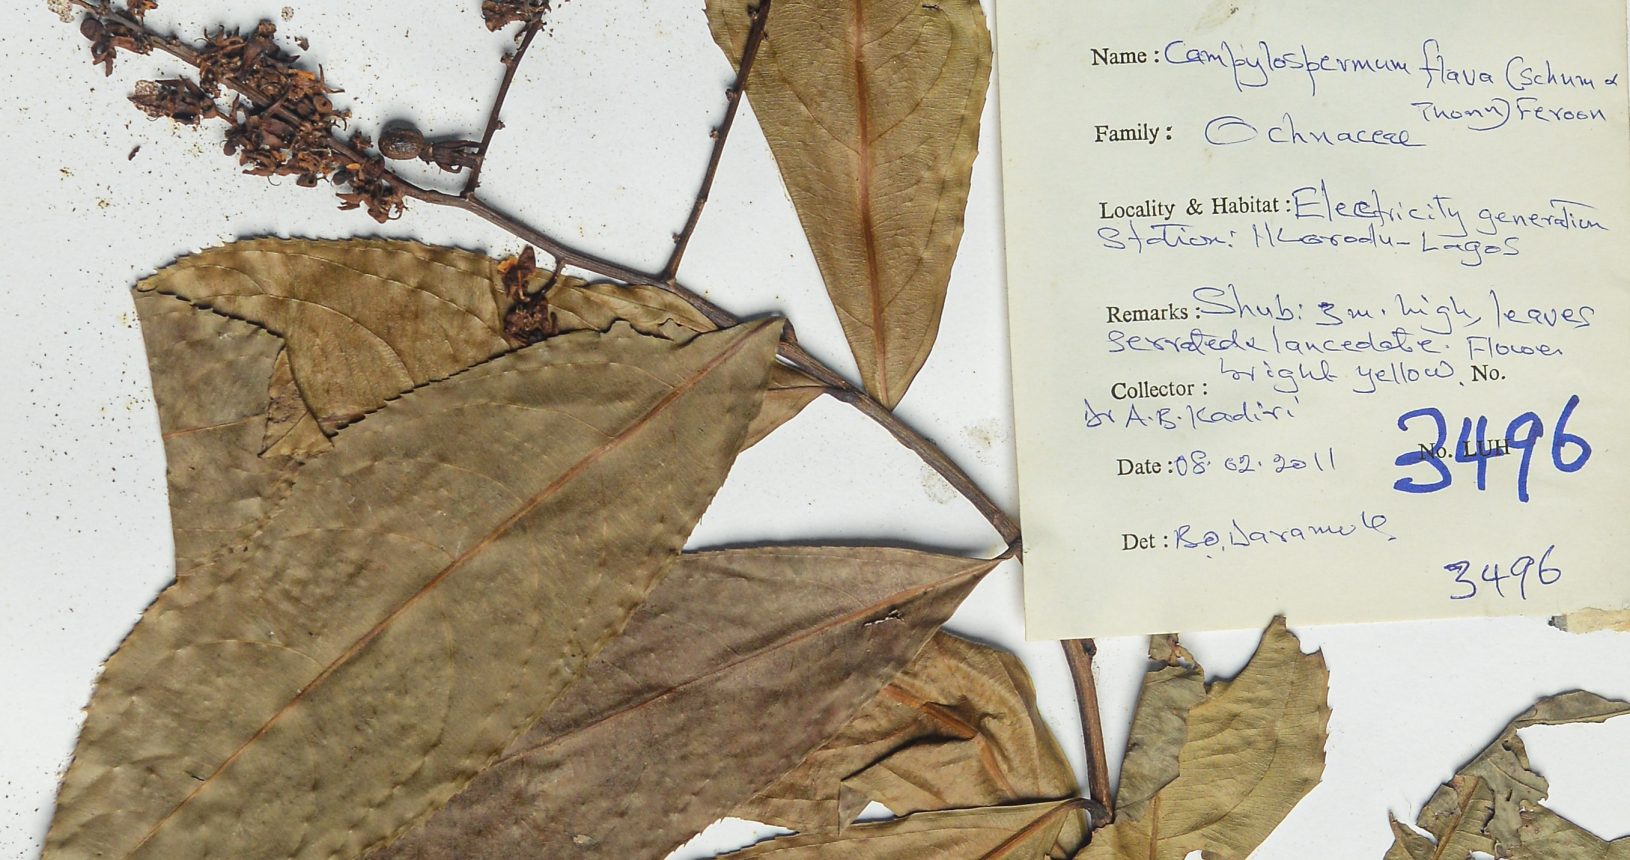 Name: Campylospermum flava (Schum &
Thonn) Feroon
Family: Ochnaceae
Locality & Habitat: Electricity generation
Station: Ikorodu-Lagos
Remarks: Shub: 3m. high, leaves
Serrated & lanceolate. Flower
bright yellow. No.
Collector:
Dr A.B. Kadiri
3496
No. LUH
Date: 08.02.2011
Det: B.O. Daramola
3496